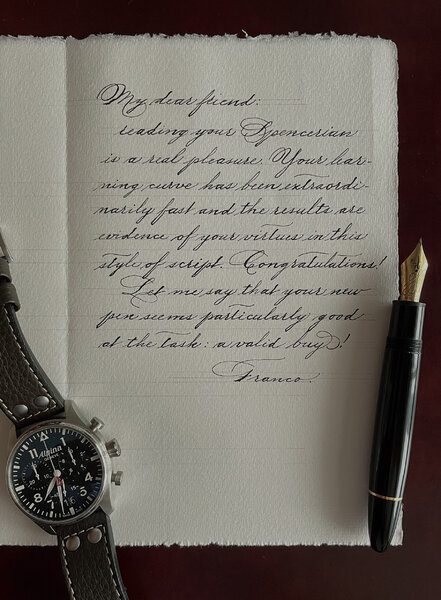 My dear friend:
reading your Spencerian
is a real pleasure. Your lear-
ning curve has been extraordi-
narily fast and the results are
evidence of your virtues in this
style of script. Congratulations!
Let me say that your new
pen seems particularly good
at the task: a valid buy!
Franco.
Alpina